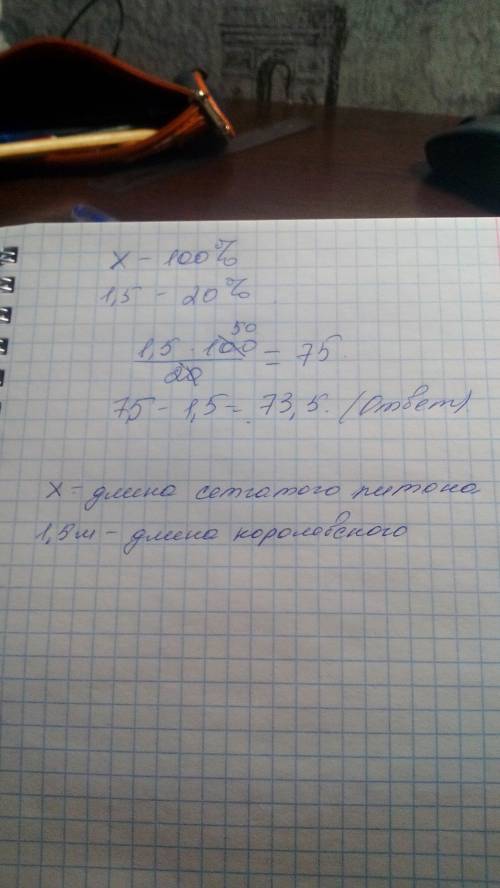 х - 100%
1,5 - 20%
50
1,5 · 100
20
= 75.
75 - 1,5 = 73,5. (Ответ)
х - длина сетчатого питона
1,5м - длина королевского